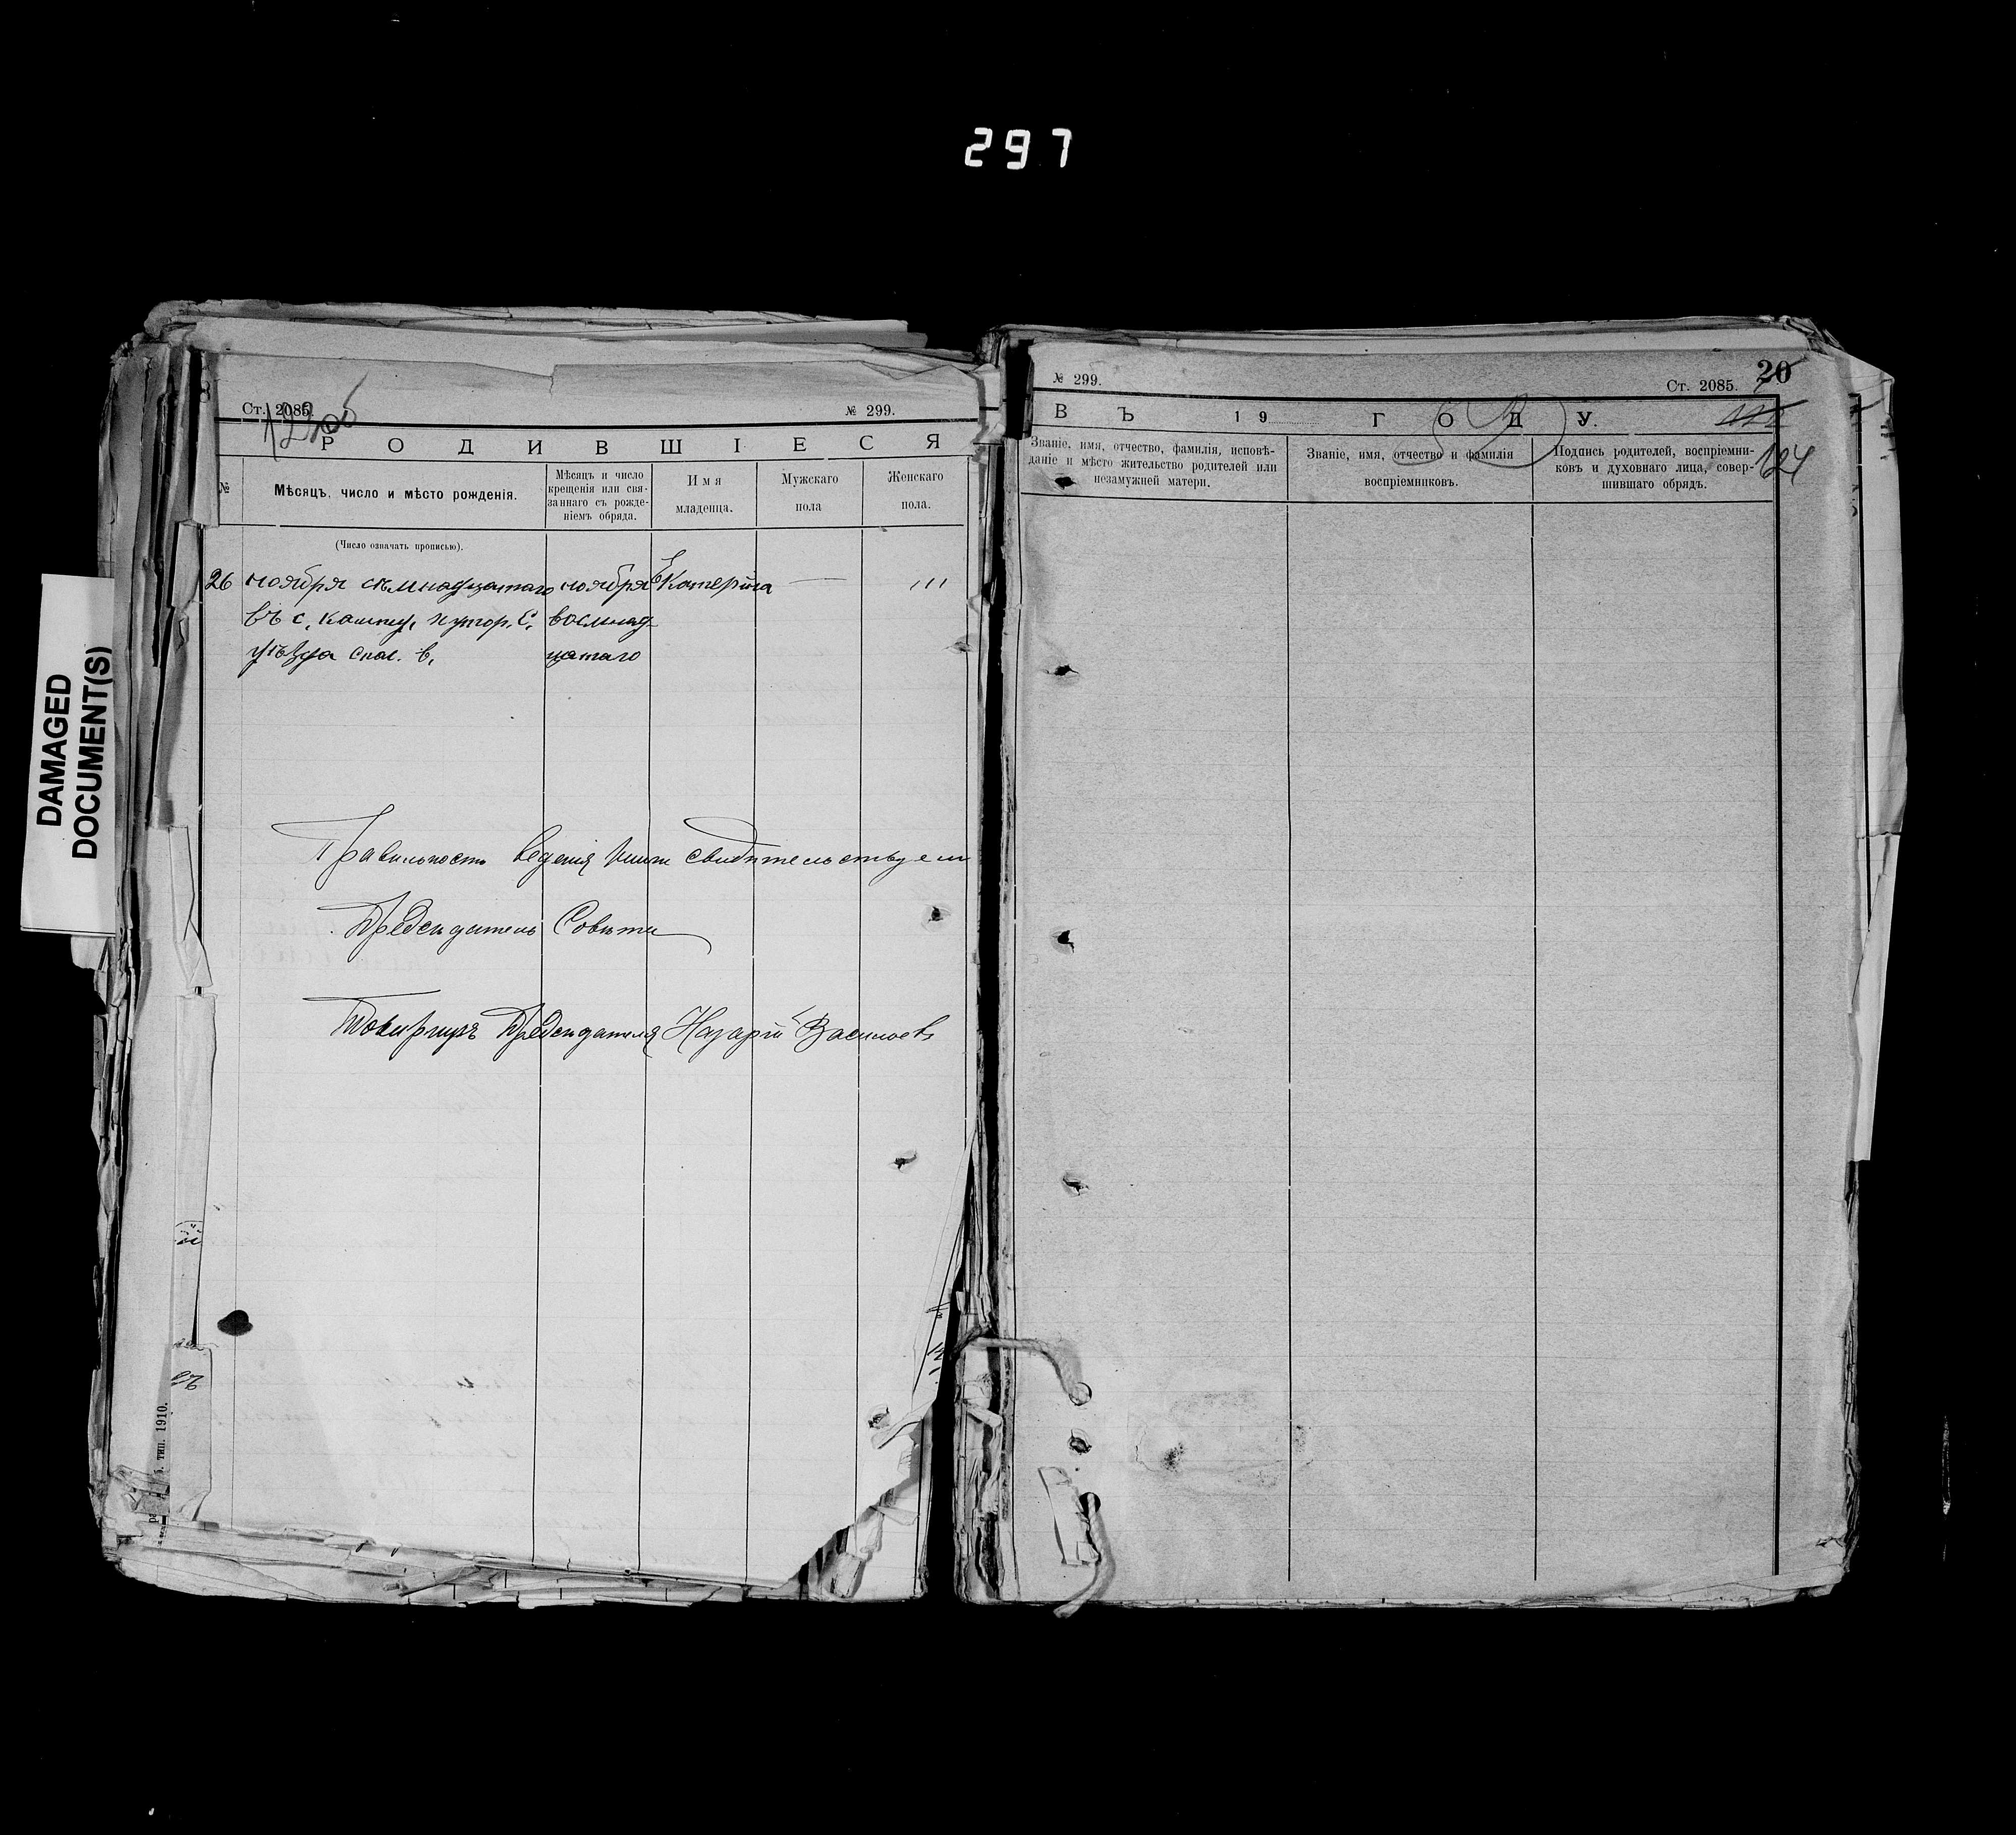 297
DAMAGED
DOCUMENT(S)
Ст. 2085.
№ 299.
РОДИВШІЕСЯ
№
Мѣсяцъ, число и мѣсто рожденія.
Мѣсяцъ и число
крещенія или свя-
заннаго съ рожде-
ніемъ обряда.
Имя
младенца.
Мужскаго
пола
Женскаго
пола.
(Число означать прописью).
26 ноября сѣмнадцатаго ноября Екатерина — ,,,
въ с. восмнад-
уѣзда цатаго
Правильность веденія книги свидѣтельствуем
Предсѣдатель Совѣта
Товарищъ Предсѣдателя Назарій Васильевъ
тип. 1910.
№ 299.
Ст. 2085.
20
ВЪ 19 ГОДУ.
124
Званіе, имя, отчество, фамилія, исповѣ-
даніе и мѣсто жительство родителей или
незамужней матери.
Званіе, имя, отчество и фамилія
воспріемниковъ.
Подпись родителей, воспріемни-
ковъ и духовнаго лица, совер-
шившаго обрядъ.